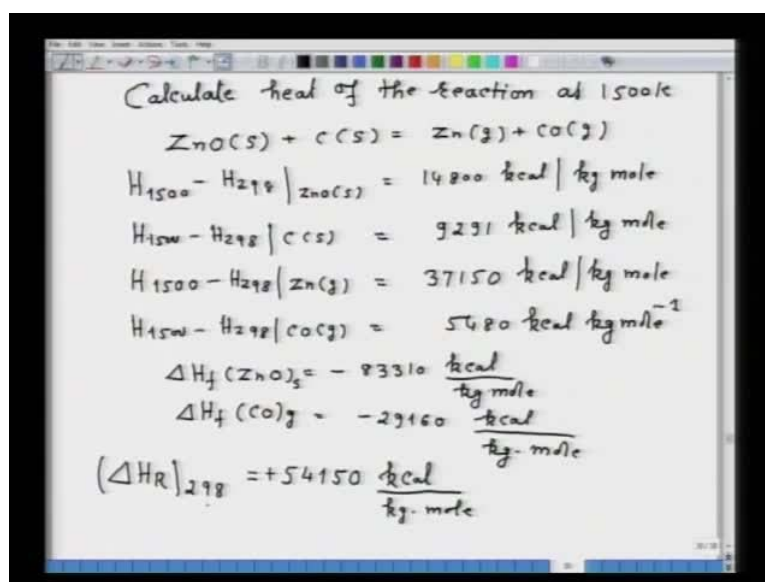 Calculate heat of the reaction at 1500K
ZnO(s) + C(s) = Zn(g) + CO(g)
H1500 - H298 | ZnO(s) = 14800 kcal | kg mole
H1500 - H298 | C(s) = 9291 kcal | kg mole
H1500 - H298 | Zn(g) = 37150 kcal | kg mole
H1500 - H298 | CO(g) = 5480 kcal kg mole⁻¹
ΔHf (ZnO)s = - 83310 kcal / kg mole
ΔHf (CO)g = -29160 kcal / kg. mole
(ΔHR)298 = +54150 kcal / kg. mole